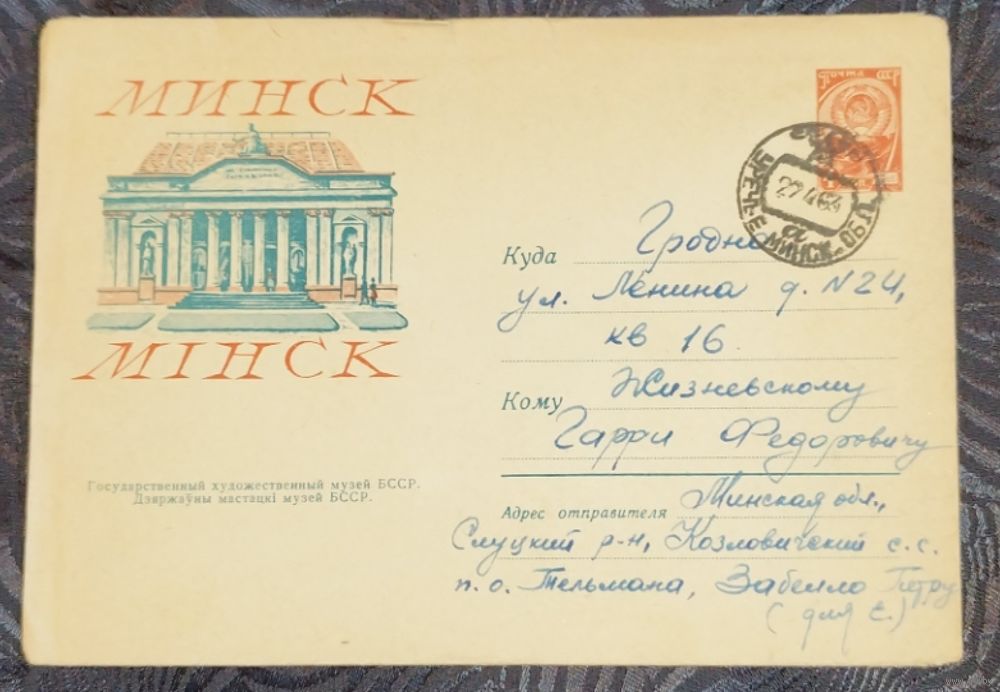 МИНСК
МІНСК
Государственный художественный музей БССР.
Дзяржаўны мастацкі музей БССР.
Почта СССР
УРЕЧЬЕ МИНСК. ОБЛ.
22 4 63
а
Куда Гродно
ул. Ленина д. N 24,
кв 16.
Кому Жизневскому
Гарри Федоровичу
Адрес отправителя Минская обл.,
Слуцкий р-н, Козловичский с.с.
п.о. Тельмана, Забелло Петру
(для Е.)